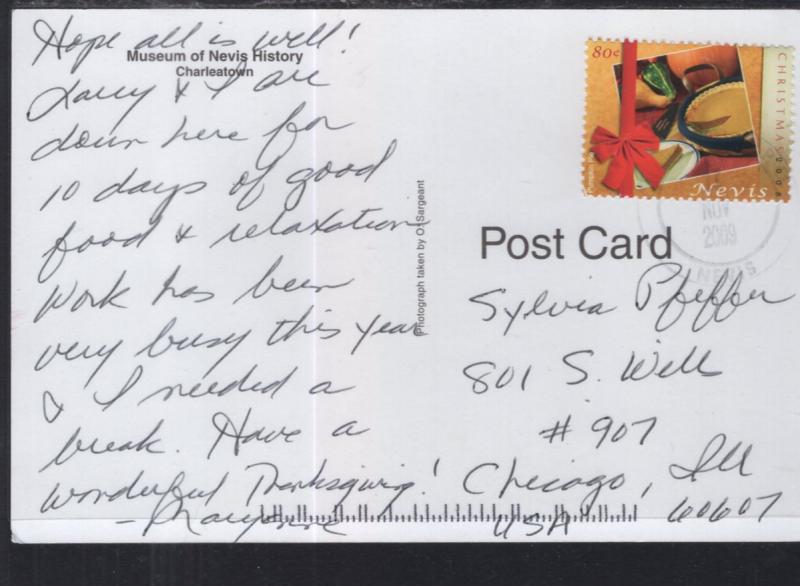 Hope all is well!
Museum of Nevis History
Charleatown
Larry & I are
down here for
10 days of good
food & relaxation
Work has been
very busy this year
& I needed a
break. Have a
wonderful Thanksgiving!
- Marjorie
Photograph taken by O. Sargeant
80¢
CHRISTMAS 2008
Nevis
NOV
2009
NEVIS
Post Card
Sylvia Pfeffer
801 S. Wells
# 907
Chicago, Ill
60607
USA